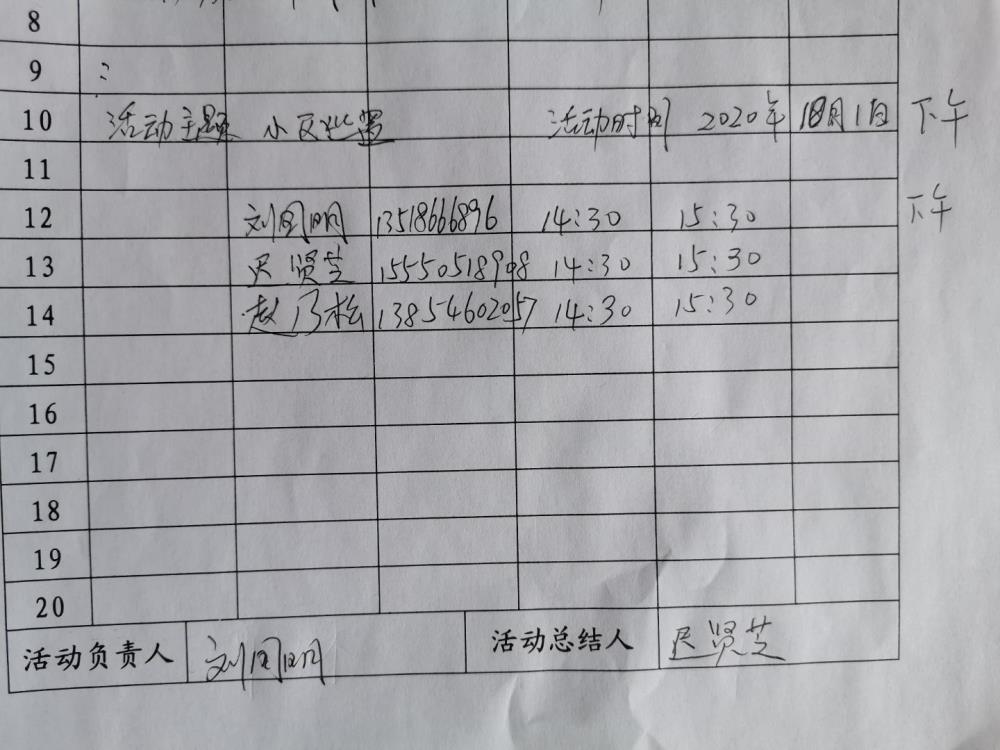 8
9
10 活动主题 小区 活动时间 2020年 10月1日 下午
11
12 刘同明 13518666896 14:30 15:30 下午
13 迟贤芝 15550518908 14:30 15:30
14 赵乃松 13854602057 14:30 15:30
15
16
17
18
19
20
活动负责人 刘同明 活动总结人 迟贤芝